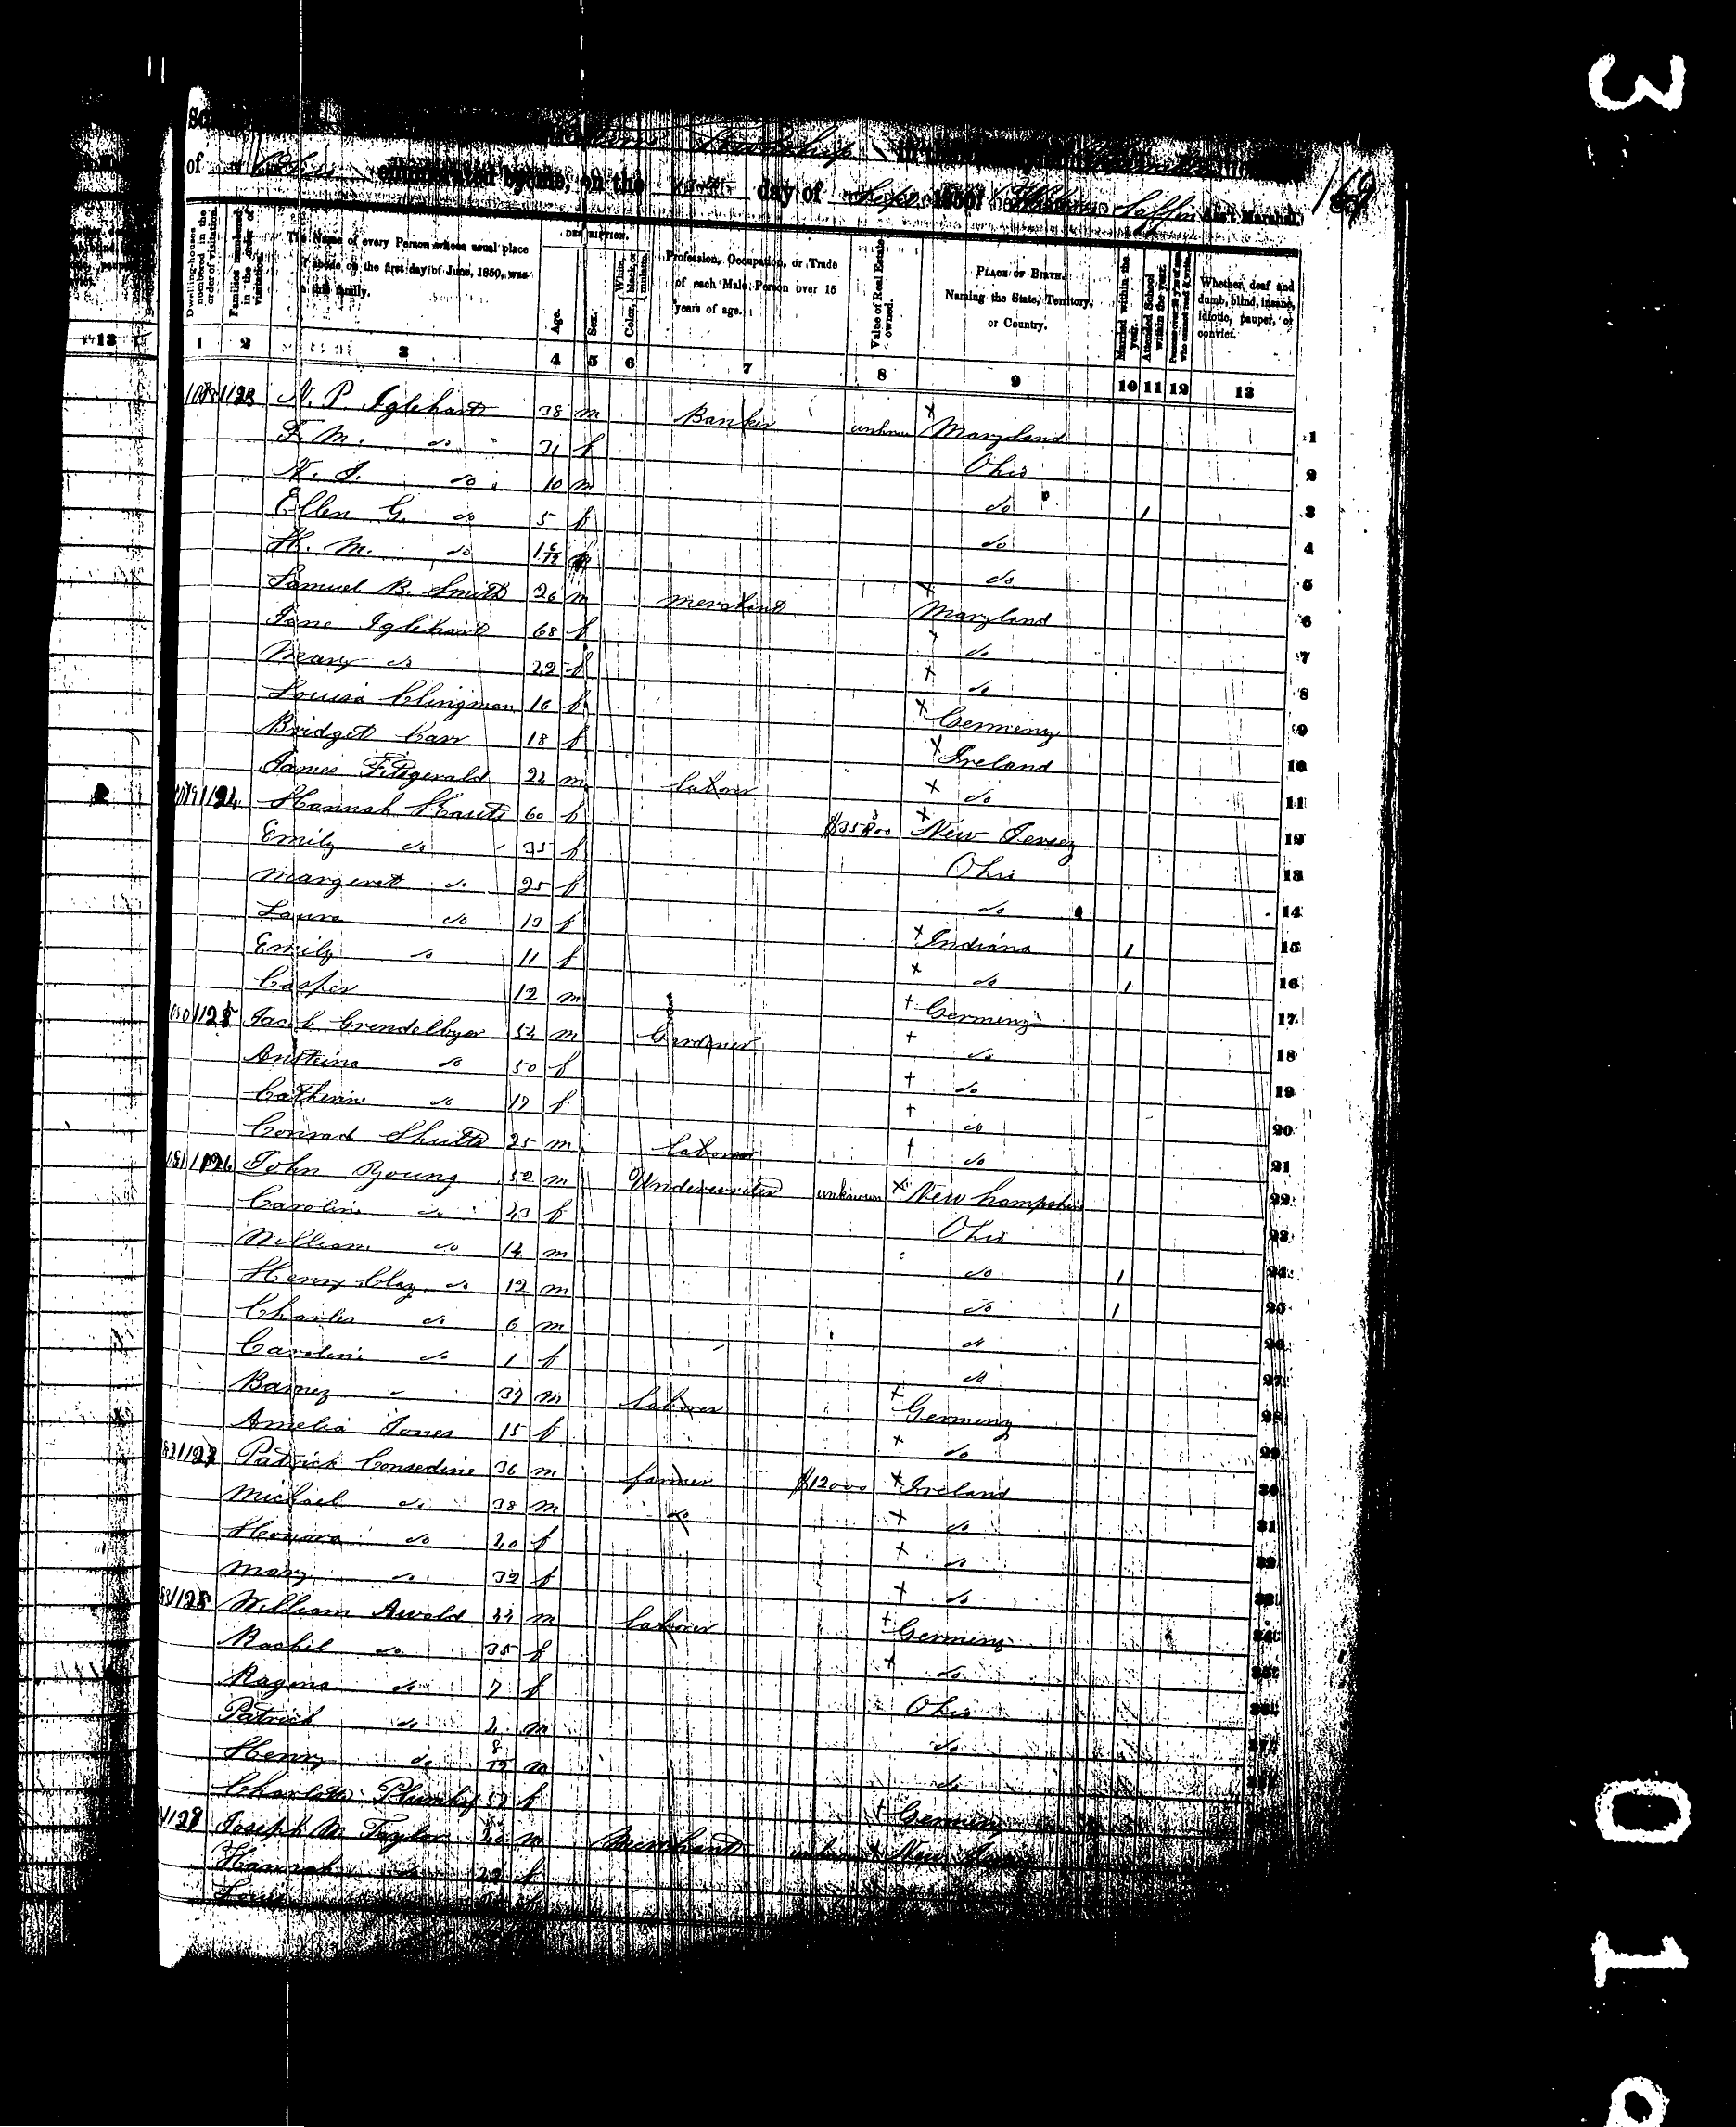 Township
of Ohio enumerated by me, on the day of Sept 1850. Saffin Ass't Marshal. 169
Dwelling-houses numbered in the order of visitation.
Families numbered in the order of visitation.
The Name of every Person whose usual place of abode on the first day of June, 1850, was in this family.
DESCRIPTION.
Age.
Sex.
Color, White, black, or mulatto.
Profession, Occupation, or Trade of each Male Person over 15 years of age.
Value of Real Estate owned.
PLACE OF BIRTH. Naming the State, Territory, or Country.
Married within the year.
Attended School within the year.
Persons over 20 y'rs of age who cannot read & write.
Whether deaf and dumb, blind, insane, idiotic, pauper, or convict.
13 1 2 3 4 5 6 7 8 9 10 11 12 13
1123 N. P. Iglehart 38 m Banker unknown x Maryland 1
F. M. do 31 f Ohio 2
N. I. do 10 m do 1 3
Ellen G. do 5 f do 4
H. M. do 1 6/12 do 5
Samuel B. Smith 26 m merchant x Maryland 6
Jane Iglehart 68 f x do 7
Mary do 22 f x do 8
Louisa Clingman 16 f x Germeny 9
Bridget Carr 18 f x Ireland 10
James Fitzgerald 22 m labour x do 11
1124 Hannah 60 f x New Jersey 12
Emily do 35 f Ohio 13
Margeret do 25 f do 14
Laura do 13 f x Indiana 1 15
Emily do 11 f x do 1 16
Casper 12 m + Germeny 17
1125 Jacob Grendelbyer 54 m Gardener + do 18
do 50 f + do 19
Catherine do 17 f + do 20
Conrad Shutts 25 m labourer + do 21
1126 John Young 52 m Underwriter unknown x New hampshire 22
Caroline do 43 f Ohio 23
William do 14 m do 1 24
Henry Clay do 12 m do 1 25
Charles do 6 m do 26
Caroline do 1 f do 27
Barney 37 m labourer + Germeny 28
Amelia Jones 15 f x do 29
1127 Patrick Consedine 36 m farmer $12000 x Ireland 30
Michael do 38 m do x do 31
Honora do 40 f x do 32
Mary do 32 f + do 33
1128 William Awald 44 m labourer + Germeny 34
Rachel do 35 f + do 35
Ragina do 7 f Ohio 36
Patrick do 4 m do 37
Henry do 8/12 m do 38
Charlotte 57 f + Germeny
Joseph M Taylor 40 m Merchant unknown x New Jersey
Hannah do f
3
0
1